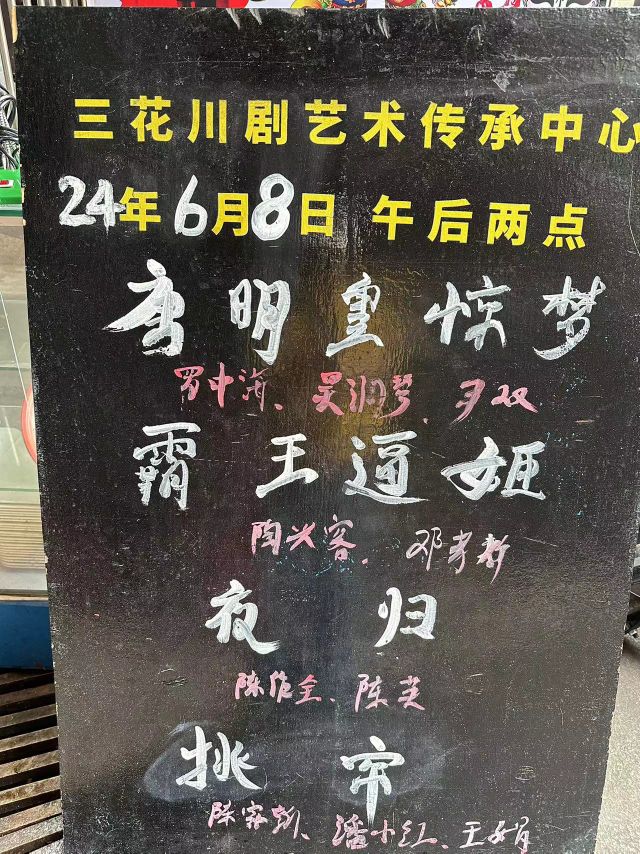 三花川剧艺术传承中心
24年6月8日 午后两点
唐明皇惊梦
罗中海、吴润梦、双
霸王逼姬
陶兴容、邓
夜归
陈作全、陈芙
挑帘
陈家、潘小红、王娟